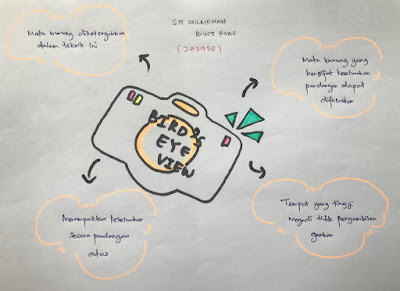 SITI SULAIKHAH
BINTI
(283958)
Mata burung diketengahkan
dalam teknik ini
Mata burung yang
bersifat keseluruhan
pandangan dapat
difokuskan
BIRD'S
EYE
VIEW
Menampakkan keseluruhan
secara pandangan
atas
Tempat yang tinggi
menjadi titik pengambilan
gambar